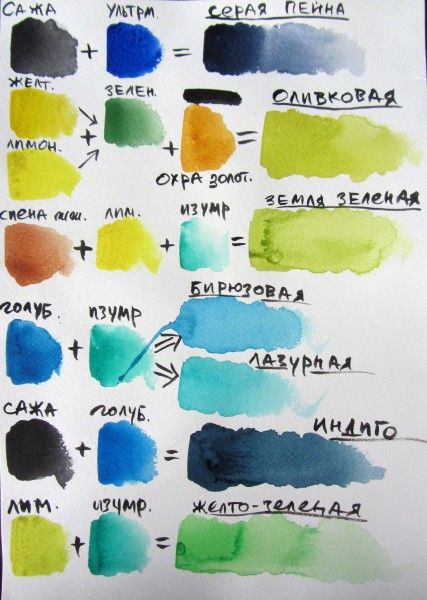 САЖА + УЛЬТРМ. = СЕРАЯ ПЕЙНА
ЖЕЛТ.
ЗЕЛЕН.
ОЛИВКОВАЯ
+ + =
ЛИМОН.
ОХРА ЗОЛОТ.
ЗЕМЛЯ ЗЕЛЕНАЯ
СИЕНА + ЛИМ. + ИЗУМР =
БИРЮЗОВАЯ
ГОЛУБ. + ИЗУМР
ЛАЗУРНАЯ
САЖА + ГОЛУБ. = ИНДИГО
ЛИМ. + ИЗУМР. = ЖЕЛТО-ЗЕЛЕНАЯ